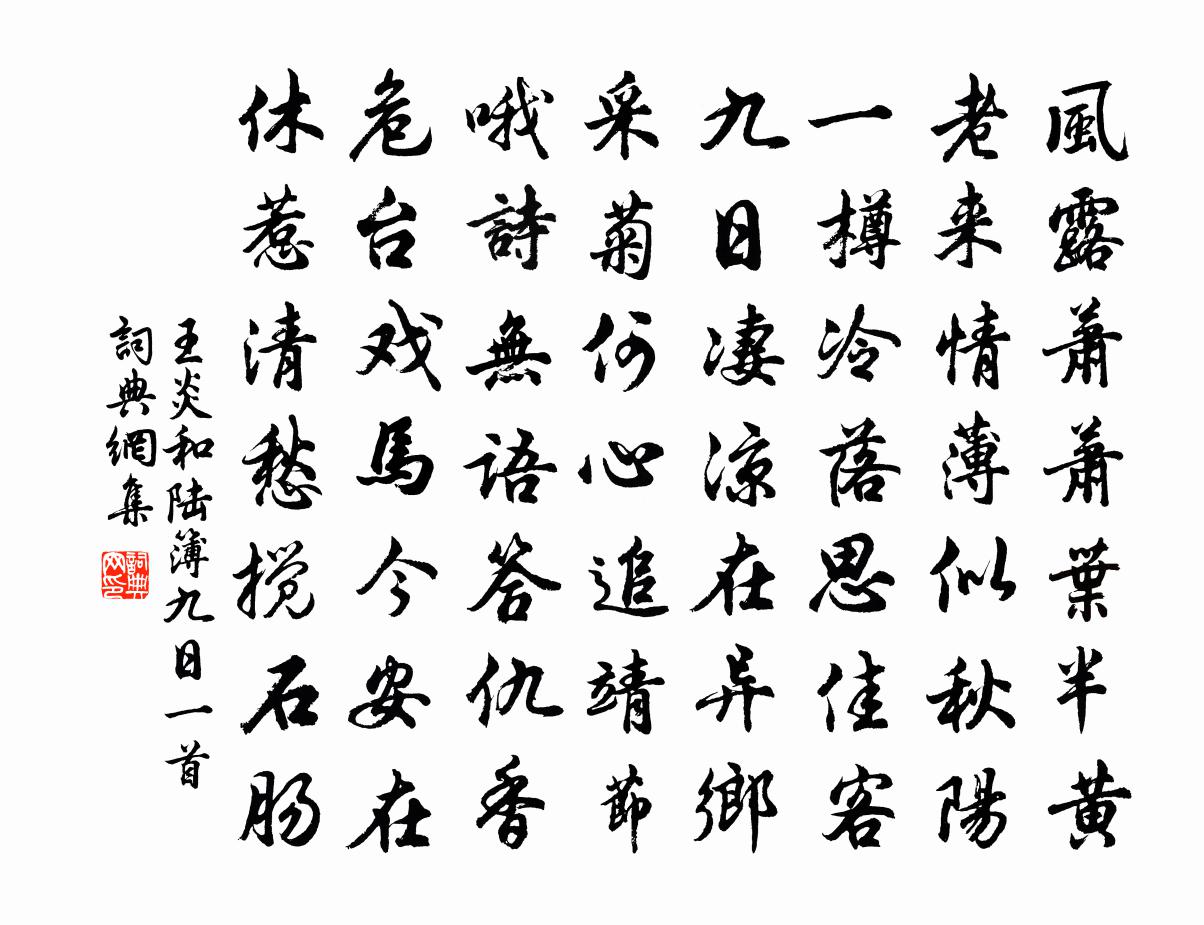 風露蕭蕭葉半黄
老来情薄似秋陽
一樽冷落思佳客
九日凄涼在异鄉
采菊何心追靖節
哦詩無語答仇香
危台戏馬今安在
休惹清愁搅石肠
王炎和陆簿九日一首
詞典網集
詞典网印